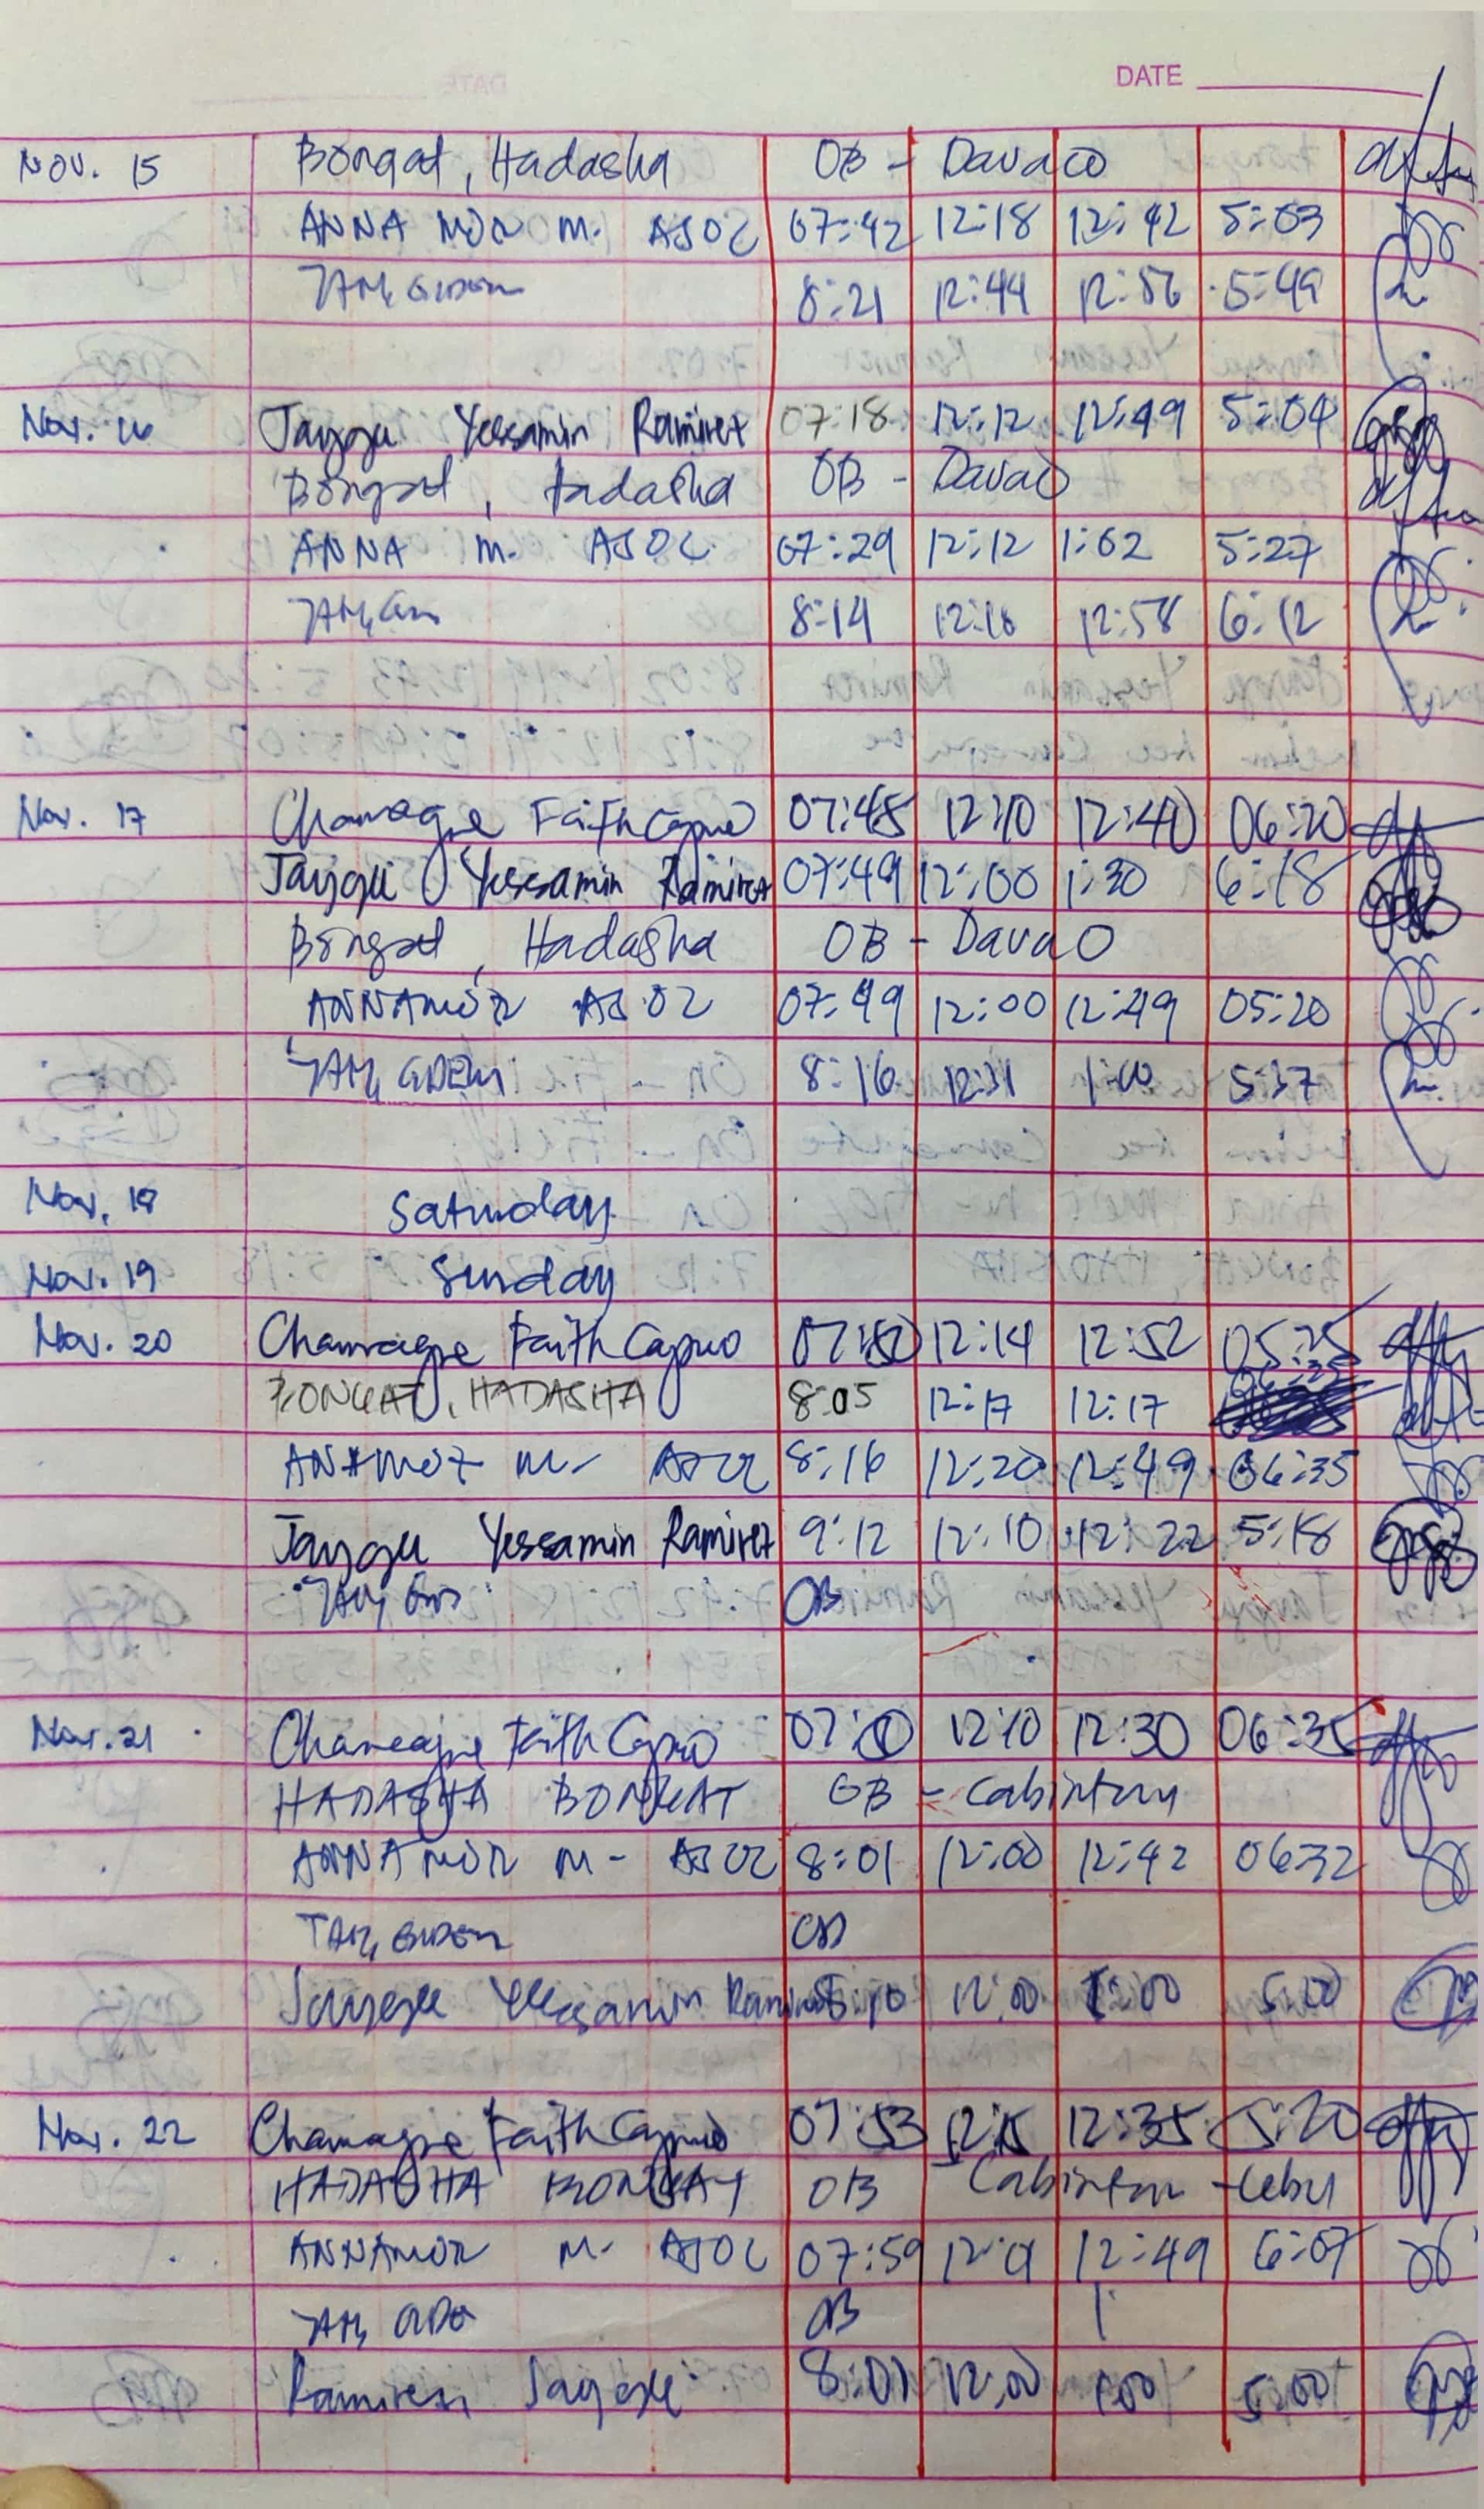 DATE
NOV. 15 Bongat, Hadasha OB - Davao
ANNA MOR M. AJOC 07:42 12:18 12:42 5:03
8:21 12:44 12:56 5:49
Nov. 16 Jaygee Yessamin Ramirez 07:18 12:12 12:49 5:04
Bongat, Hadasha OB - Davao
ANNA M. AJOC 07:29 12:12 1:02 5:27
8:14 12:16 12:58 6:12
Nov. 17 Faith 07:45 12:10 12:40 06:20
Yessamin Ramirez 07:49 12:00 1:30 6:18
Bongat, Hadasha OB - Davao
ANNAMOR AJOC 07:49 12:00 12:49 05:20
8:16 12:31 1:00 5:37
Nov. 18 Saturday
Nov. 19 Sunday
Nov. 20 Faith 12:14 12:52 05:25
BONGAT, HADASHA 8:05 12:17 12:17
M. 8:16 12:20 12:49 06:35
Yessamin Ramirez 9:12 12:10 12:22 5:18
OB
Nov. 21 Faith 12:10 12:30 06:35
HADASHA BONGAT OB -
ANNAMOR M- AJOC 8:01 12:00 12:42 06:32
OB
Yessamin 12:00 1:00 5:00
Nov. 22 Faith 07:53 12:15 12:35 5:20
HADASHA BONGAT OB - Cebu
ANNAMOR M- AJOC 07:59 12:49 6:07
OB
8:01 12:00 1:00 5:00